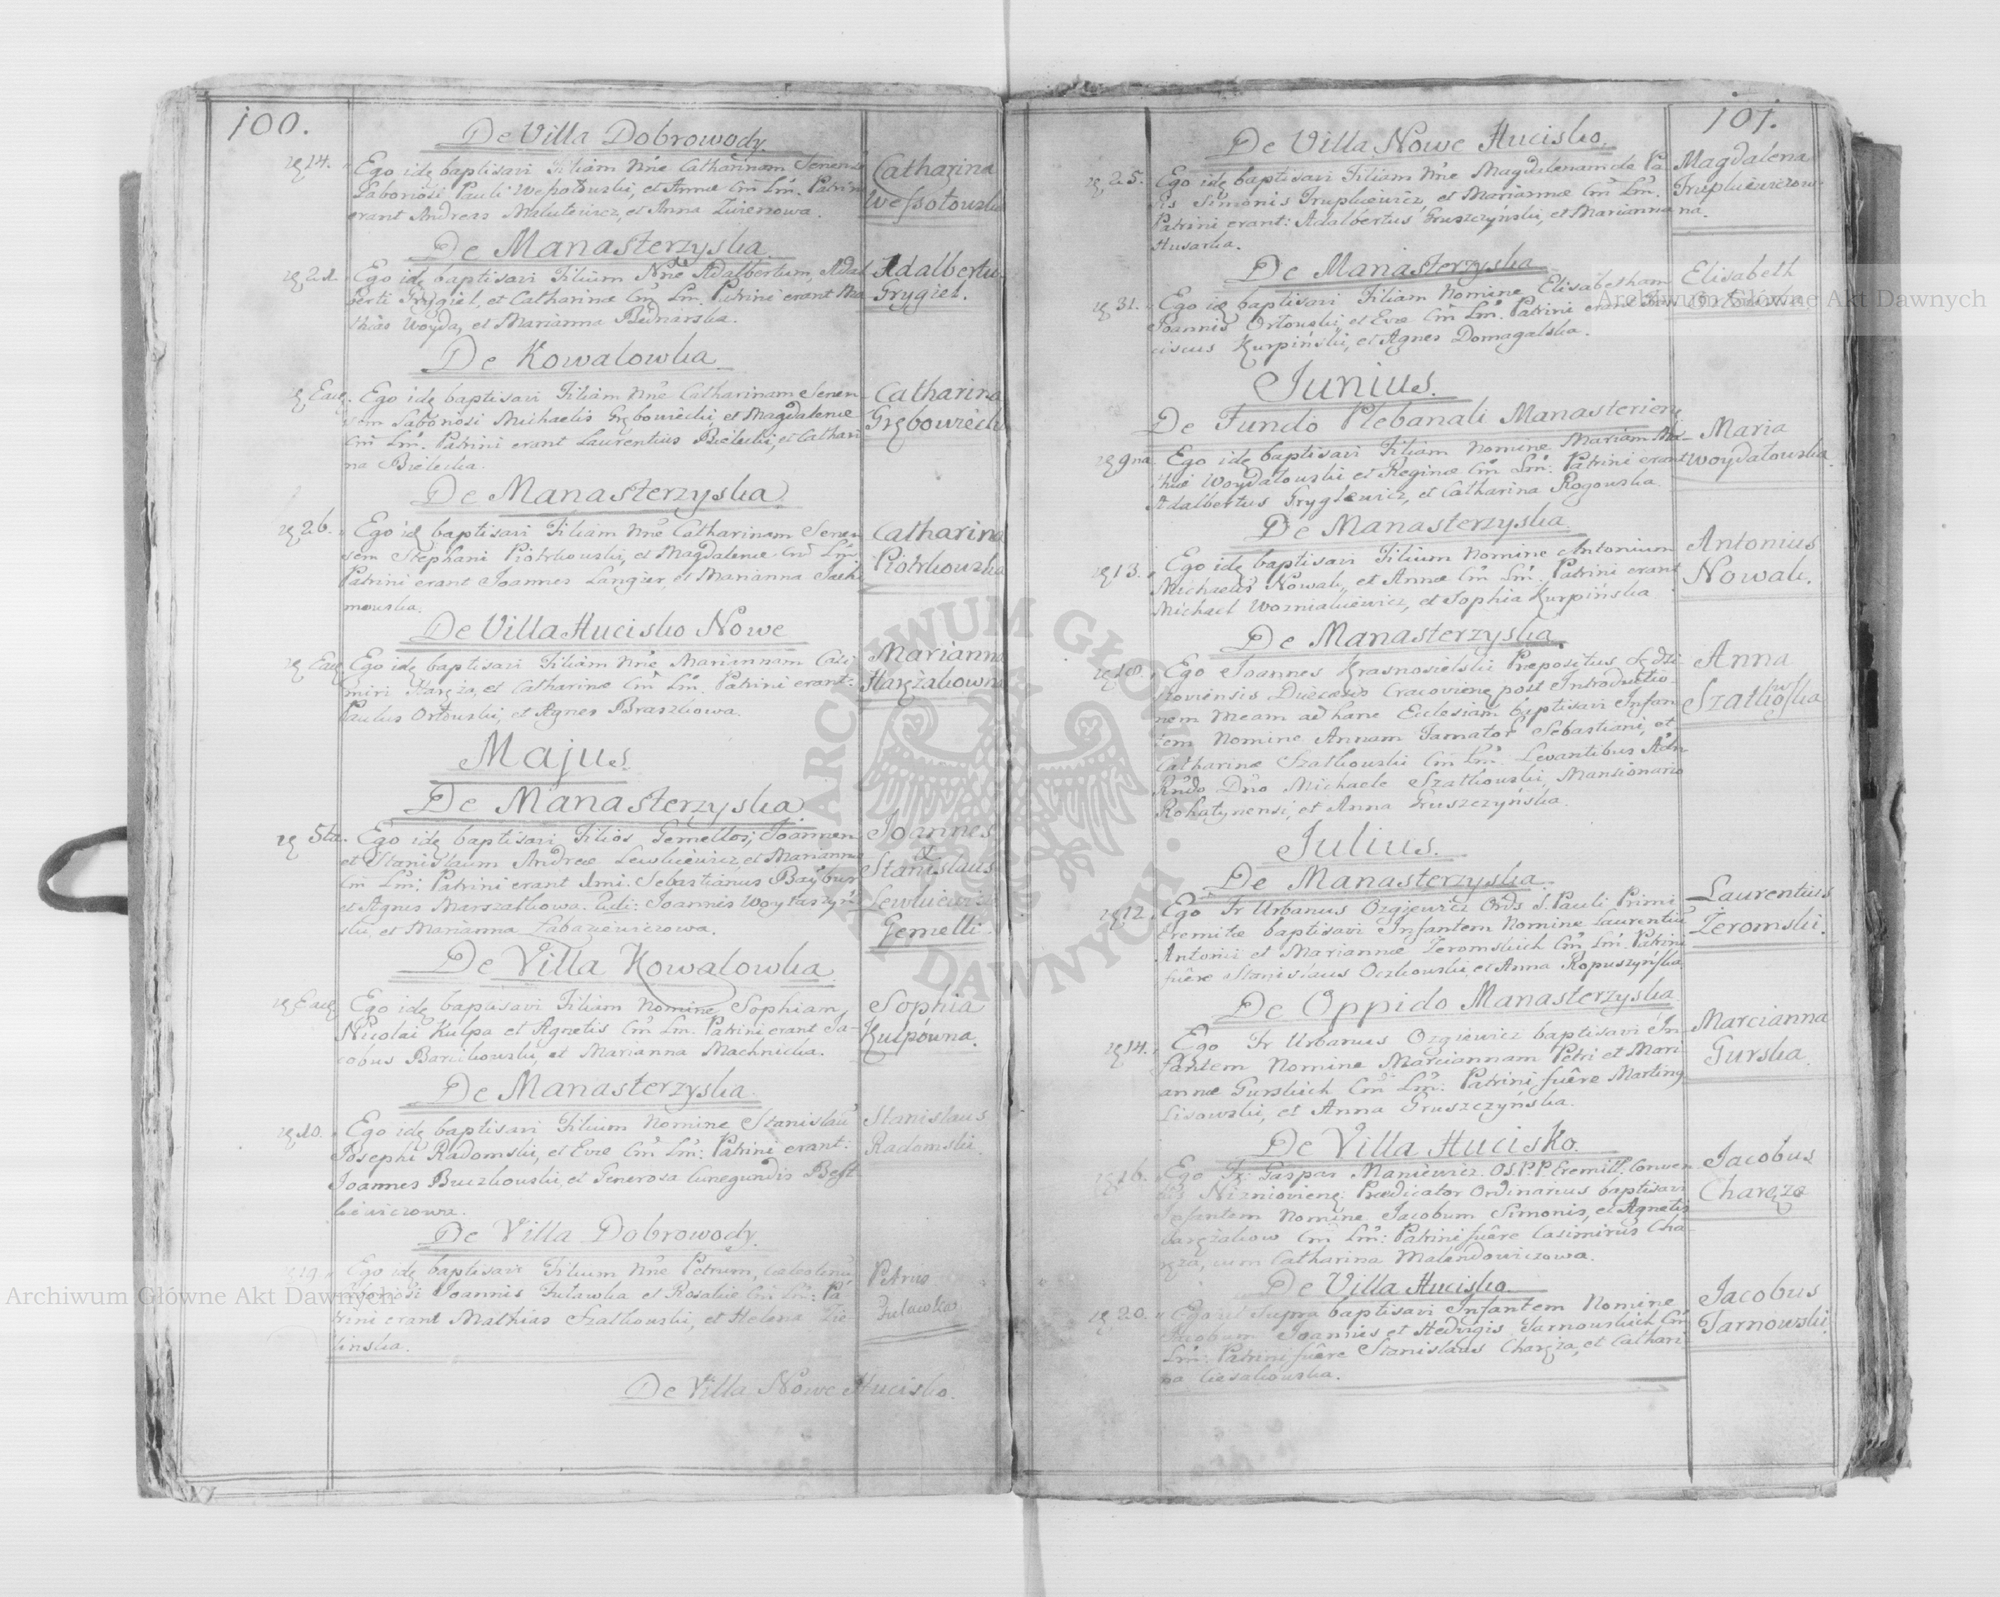 100.
De Villa Dobrowody.
14. Ego idę baptisavi Filiam Nñe Catharinam
Laboriosi Pauli Wessołowski, et Annæ Cm̃ Lm̃. Patrini
erant Andreas Malutewicz, et Anna
Catharina
De Manasterzyska
Ego idę baptisavi Filium Nñe Adalbertum, Adal
berti Grygiel, et Catharinæ Cm̃ Lm̃. Patrini erant Ma
thias Woyda, et Marianna Bednarska.
Adalbertus
Grygiel.
De Kowalowka
Eaę. Ego idę baptisavi Filiam Nñe Catharinam
Laboriosi Michaelis Grębowiecki, et Magdalenæ
Cm̃ Lm̃. Patrini erant Laurentius Bielecki, et Cathari
na Bielecka.
Catharina
De Manasterzyska
26. Ego idę baptisavi Filiam Nñe Catharinam
Stephani Piotrkowski, et Magdalenæ Cm̃ Lm̃.
Patrini erant Joannes Langier, et Marianna
mowska.
Catharina
Piotrkowska
De Villa Hucisko Nowe
Eaę Ego idę baptisavi Filiam Nñe Mariannam Casi
miri Haręza, et Catharinæ Cm̃ Lm̃. Patrini erant:
Paulus Orłowski, et Agnes Braszkowa.
Marianna
Majus
De Manasterzyska
5ta. Ego idę baptisavi Filios Gemellos, Joannem
et Stanislaum Andreæ Lewkiewicz et Mariannæ
Cm̃ Lm̃: Patrini erant 1mi. Sebastianus
et Agnes Marszałkowa. 2di: Joannes
ski, et Marianna
Joannes
&
Stanislaus
Lewkiewicz
Gemelli
De Villa Kowalowka
Eaę Ego idę baptisavi Filiam Nomine Sophiam,
Nicolai Kulpa et Agnetis Cm̃ Lm̃. Patrini erant Ja-
cobus et Marianna Machnicka.
Sophia
Kulpowna.
De Manasterzyska.
10. Ego idę baptisavi Filium Nomine Stanislaũ
Josephi Radomski, et Evæ Cm̃ Lm̃: Patrini erant:
Joannes Bruzkowski, et Generosa Cunegundis
kiewiczowa.
Stanislaus
Radomski.
De Villa Dobrowody.
19. Ego idę baptisavi Filium Nñe Petrum,
Joannis Zulawka et Rosaliæ Cm̃ Lm̃: Pa
trini erant Mathias Szatkowski, et Helena Zie
linska.
Petrus
Zulawka
De Villa Nowe Hucisko.
101.
De Villa Nowe Hucisko.
25. Ego idę baptisavi Filiam Nñe Magdalenam
Simonis Trupkiewicz, et Mariannæ Cm̃ Lm̃.
Patrini erant: Adalbertus Gruszczyński, et Marianna
Husarka.
Magdalena
Trupkiewiczow-
na.
De Manasterzyska
31. Ego idę baptisavi Filiam Nomine Elisabetham
Joannis Orłowski, et Evæ Cm̃ Lm̃. Patrini erant Fran
ciscus Kurpiński, et Agnes Domagalska.
Elisabeth
Junius.
De Fundo Plebanali Manasterien:
9na. Ego idę baptisavi Filiam Nomine Mariam
Woydatowski et Reginæ Cm̃ Lm̃: Patrini erant
Adalbertus Gryglewicz, et Catharina Rogowska.
Maria
Woydatowska
De Manasterzyska.
13. Ego idę baptisavi Filium Nomine Antonium
Michaelis Nowak, et Annæ Cm̃ Lm̃. Patrini erant
Michael Wozniakiewicz, et Sophia Kurpińska
Antonius
Nowak.
De Manasterzyska
18. Ego Joannes Krasnosielski Præpositus Sędzi
szoviensis Diæcesis Cracovien post Introductio-
nem meam ad hanc Ecclesiam baptisavi Infan
tem Nomine Annam Famator Sebastiani, et
Catharinæ Szatkowski Cm̃ Lm̃. Levantibus Adm
Rñdo Dño Michaele Szatkowski, Mansionario
Rohatynensi, et Anna Gruszczyńska.
Anna
Szatkowska
Julius.
De Manasterzyska.
12. Ego Fr Urbanus Ozgiewicz Ords S. Pauli Primi
Eremitæ baptisavi Infantem Nomine Laurentiũ
Antonii et Mariannæ Zeromskich Cm̃ Lm̃. Patrini
fuêre Stanislaus Oczkowski, et Anna Ropuszyńska
Laurentius
Zeromski.
De Oppido Manasterzyska
14. Ego Fr Urbanus Ozgiewicz baptisavi In
fantem Nomine Marciannam Petri et Mari
annæ Gurskich Cm̃ Lm̃: Patrini fuêre Martinus
Lisowski, et Anna Gruszczyńska.
Marcianna
Gurska
De Villa Hucisko.
16. Ego Fr: Gaspar Maniewicz OS.P.P. Eremitt. Conven
tus Prædicator Ordinarius baptisavi
Infantem Nomine Jacobum Simonis, et Agnetis
Cm̃ Lm̃: Patrini fuêre Casimirus Cha-
ręza, cum Catharina Malandowiczowa.
Jacobus
Charęza
De Villa Hucisko.
20. Ego ut supra baptisavi Infantem Nomine
Jacobum Joannis et Hedvigis Tarnowskich Cm̃
Lm̃: Patrini fuêre Stanislaus Charęza, et Cathari
na
Jacobus
Tarnowski.
ARCHIWUM GŁÓWNE AKT DAWNYCH
Archiwum Główne Akt Dawnych
Archiwum Główne Akt Dawnych